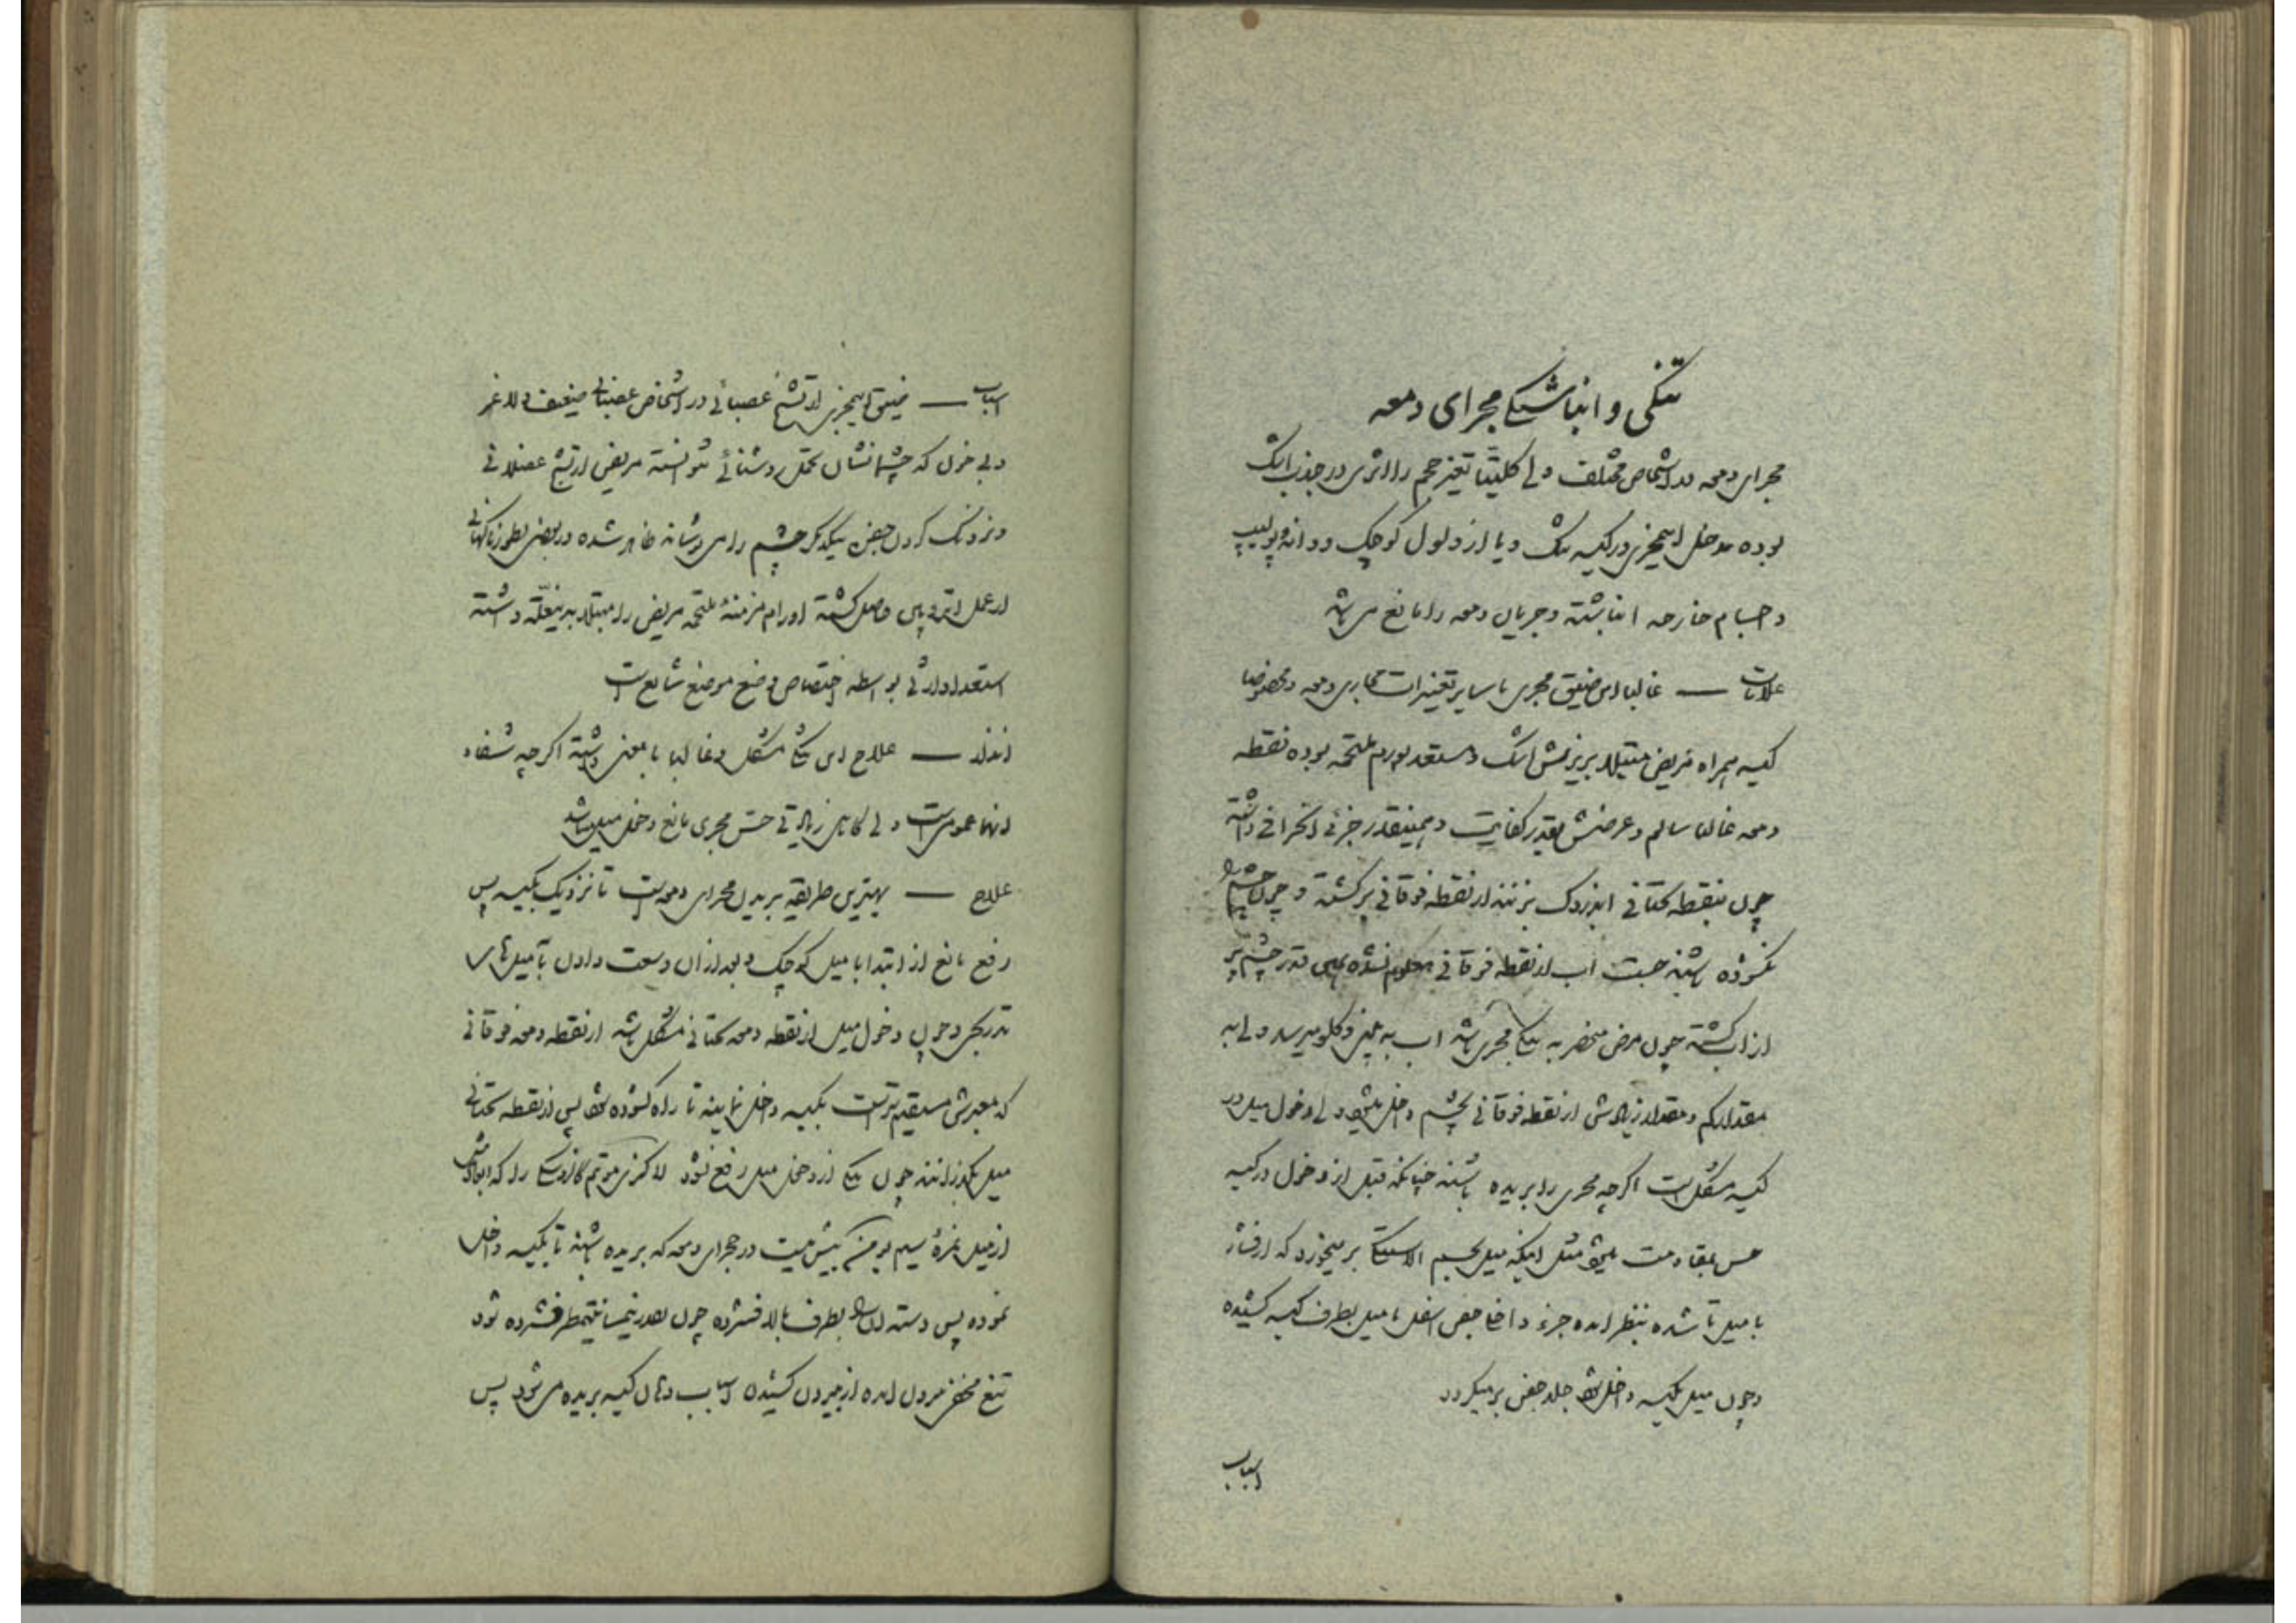 تنگی و انباشتگی مجرای دمعه
مجرای دمعه در اشخاص مختلف ولی کلیتاً تغیر حجم را اثری در جذب اشک
بوده مدخل اسمجری در کیسه تنگ و یا از ولول کوچک و دانهٔ پولیپ
و اجسام خارجه انباشته و جریان دمعه را مانع می باشد
علامات — غالبا این ضیق مجری با سایر تغیرات مجاری دمعه و مخصوصا
کیسه همراه مریض مبتلا بریزش اشک و مستعد بورم ملتحمه بوده نقطه
دمعه غالبا سالم و عرضش بقدر کفایت و همینقدر جزئی انحرافی داشته
چون بنقطه تحتانی اندروک بزنند از نقطه فوقانی برگشته و چون چشم را
نگشوده باشند جست آب از نقطه فوقانی معلوم نشده همین قدر چشم پر
از آب گشته چون مرض منحصر به تنگی مجری باشد آب به بینی و گلو میرسد ولی به
مقدار کم و مقدار زیادش از نقطه فوقانی بچشم داخل میشود ولی دخول میل در
کیسه مشکل است اگر چه مجری را بریده باشند چنانکه قبل از دخول در کیسه
حس بمقاومت میشود مثل اینکه میل بجسم الاستیکی بر میخورد که از فشار
با میل تا شده بنظر آمده جزء داخل جفن اسفل با میل بطرف کیسه کشیده
و چون میل بکیسه داخل شود جلد جفن بر میگردد
اسباب
اسباب — ضیق اسمجری از تشنج عصبانی در اشخاص عصبانی ضعیف و لاغر
و بی خون که چشمانشان تحمل روشنائی نتوانسته مریض از تشنج عضلانی
و نزدیک کردن جفن یکدیگر چشم را می پوشاند ظاهر شده در بعضی بطور ناگهانی
از عمل حاصل گشته اورام مزمنهٔ ملتحمه مریض را مبتلا به این علة داشته
استعداد ارثی بواسطه اختصاص وضع موضع شایع است
انذار — علاج این تنگی مشکل و غالبا بی معنی داشته اگر چه شفاء
انها عمومی است ولی گاهی زیادتی حس مجری مانع دخول میل میباشد
علاج — بهترین طریقه بریدن مجرای دمعه است تا نزدیک بکیسه پس
رفع مانع از ابتدا با میل کوچک و بعد از آن وسعت دادن با میل های
تدریجی و چون دخول میل از نقطه دمعه تحتانی مشکل باشد از نقطه دمعه فوقانی
که معبرش مستقیم تر است بکیسه داخل نمایند تا راه گشوده شود پس از نقطه تحتانی
میل بگذرانند چون تنگی از دخول میل رفع نشود را که
از میل نمرهٔ سیم بیش نیست در مجرای دمعه که بریده باشند تا بکیسه داخل
نموده پس دسته انرا بطرف بالا فشرده چون بقدر نیم سانتیمطر فشرده شود
تیغ مخفی بیرون آمده از بیرون کشیدن اسباب دهان کیسه بریده می شود پس